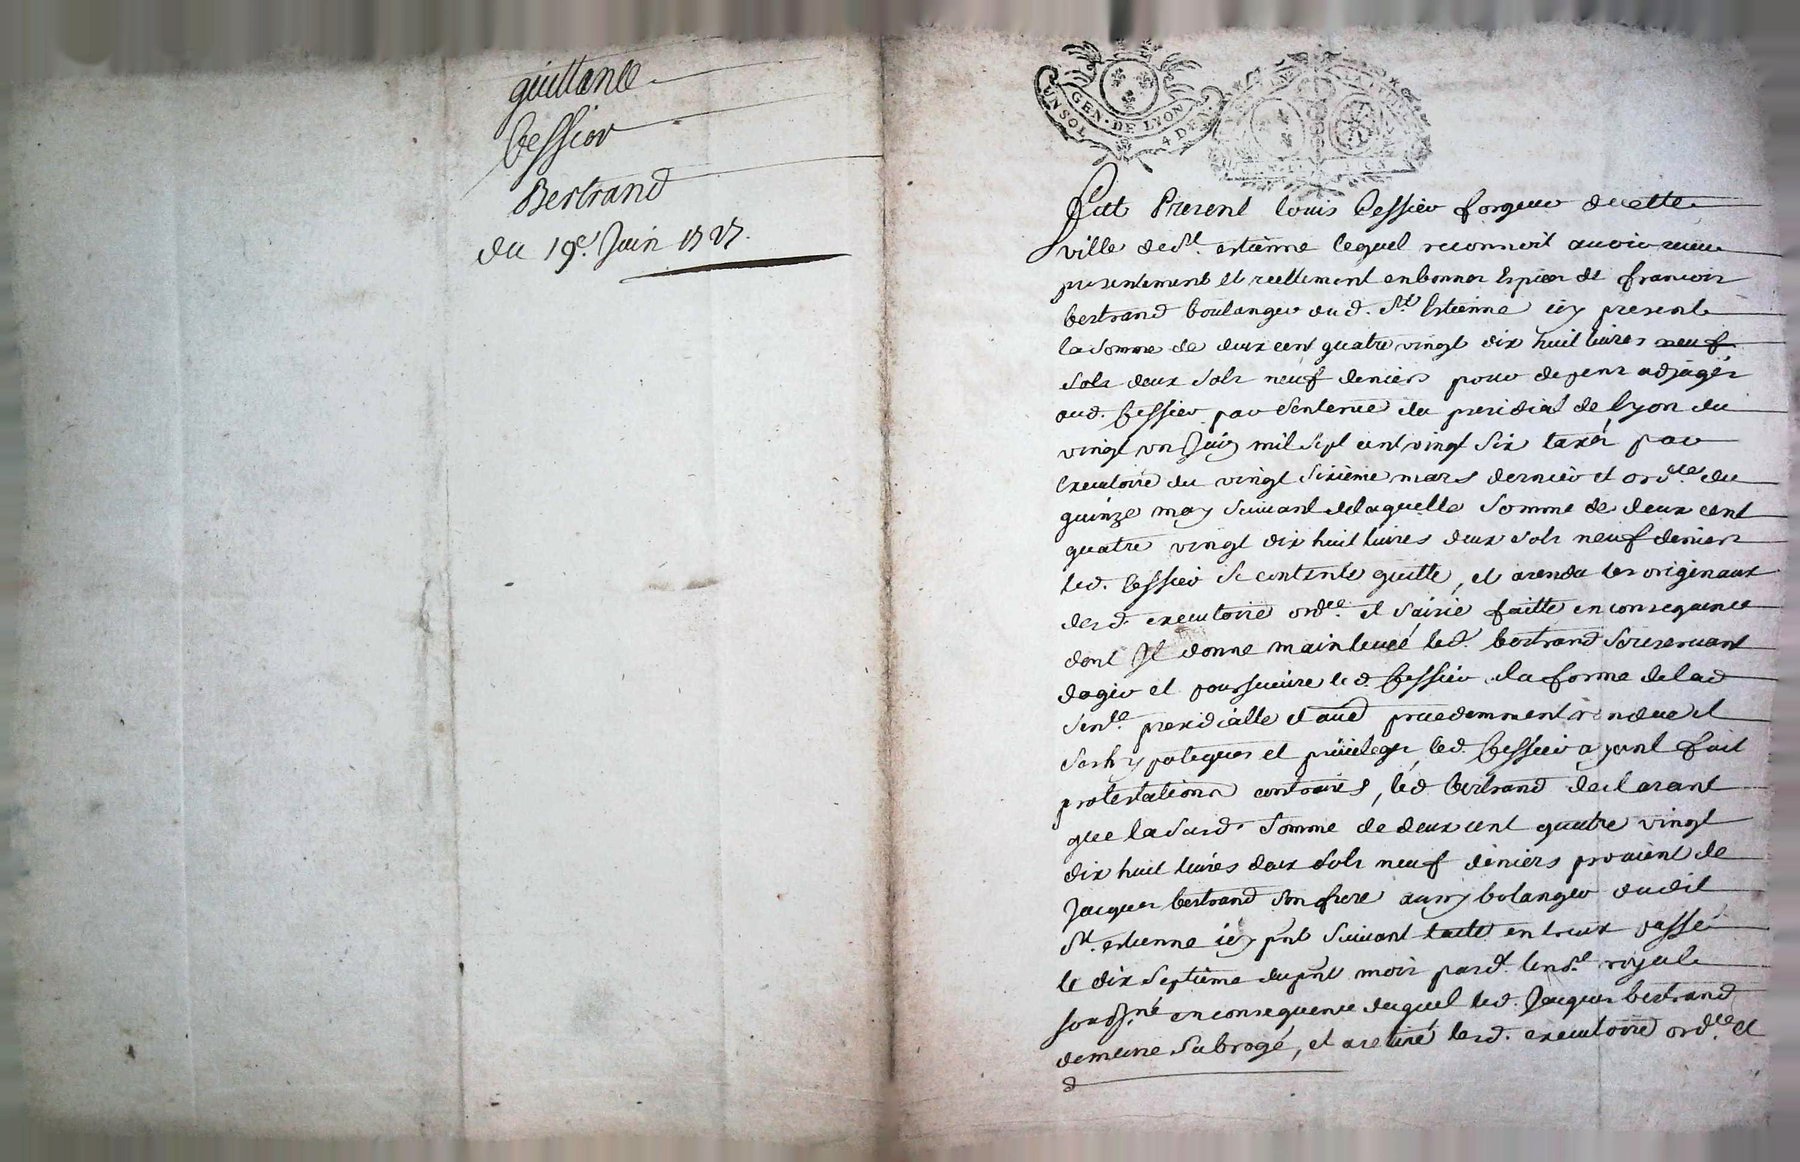 quittance
bessier
Bertrand
du 19e. Juin 1727.
UN SOL
GEN. DE LYON
4 DEN
Fut Present louis bessier forgeur decette
ville de st. estienne lequel reconnoit auoir receu
presentement et reellement en bonnes Especes de francois
bertrand boulanger dud. St. Estienne icy present
la somme de deux cent quatre vingt dix huit liures neuf
sols deux sols neuf deniers pour depens adjugés
aud. bessier par sentence du presidial de lyon du
vingt un Juin mil sept cent vingt six taxés par
Executoire du vingt sixieme mars dernier et ordce. du
quinze may suiuant delaquelle somme de deux cent
quatre vingt dix huit liures deux sols neuf deniers
led. bessier se contente quitte, et arendu les originaux
desd. executoire ordce. et saisie faitte en consequence
dont Il donne mainleuée led. bertrand sereseruant
dagir et poursuiure led. bessier ala forme delad
sentce. presidialle et aud precedemment rendue et
ses hypoteques et priuileges, led. bessier ayant fait
protestations contraires, led. bertrand declarant
que lasusd. somme de deux cent quatre vingt
dix huit liures deux sols neuf deniers prouient de
Jacques bertrand son frere aussy bolanger dudit
St. estienne icy pnt suiuant traité entreux passé
le dix septieme du pnt mois pard. le nore. royal
sousigné en consequence duquel led. Jacques bertrand
demeure subrogé, et a retiré lesd. executoire ordce. et